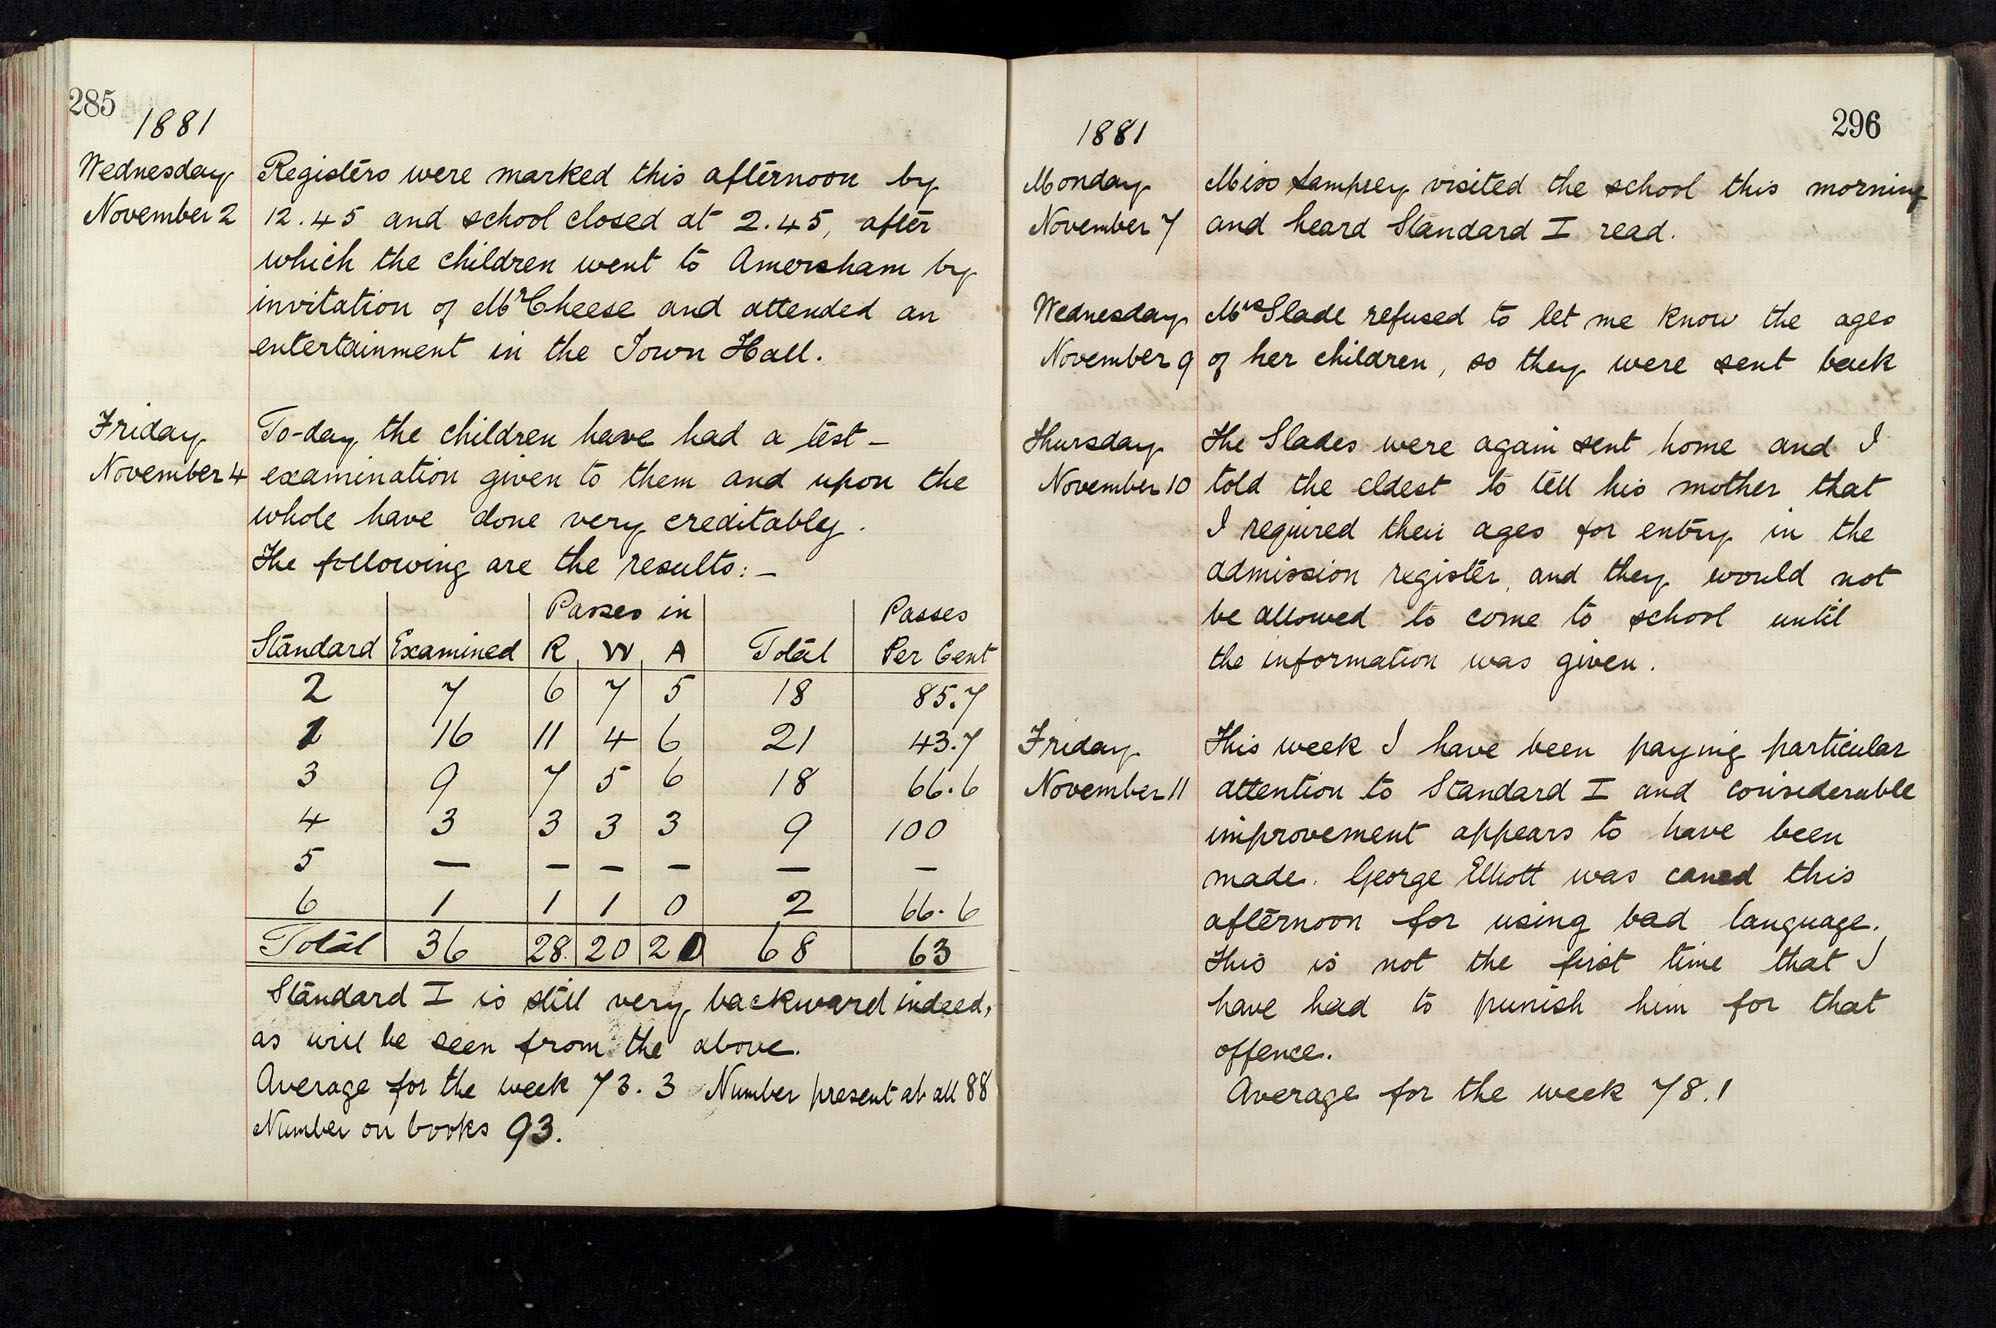 285
1881
Wednesday
November 2
Registers were marked this afternoon by
12.45 and school closed at 2.45, after
which the children went to Amersham by
invitation of Mr Cheese and attended an
entertainment in the Town Hall.
Friday
November 4
To-day the children have had a test-
examination given to them and upon the
whole have done very creditably.
The following are the results:-
Passes in Passes
Standard Examined R W A Total Per Cent
2 7 6 7 5 18 85.7
1 16 11 4 6 21 43.7
3 9 7 5 6 18 66.6
4 3 3 3 3 9 100
5 — — — — — —
6 1 1 1 0 2 66.6
Total 36 28 20 20 68 63
Standard I is still very backward indeed,
as will be seen from the above.
Average for the week 73.3 Number present at all 88
Number on books 93.
296
1881
Monday
November 7
Miss Lamprey visited the school this morning
and heard Standard I read.
Wednesday
November 9
Mrs Slade refused to let me know the ages
of her children, so they were sent back
Thursday
November 10
The Slades were again sent home and I
told the eldest to tell his mother that
I required their ages for entry in the
admission register, and they would not
be allowed to come to school until
the information was given.
Friday
November 11
This week I have been paying particular
attention to Standard I and considerable
improvement appears to have been
made. George Elliott was caned this
afternoon for using bad language.
This is not the first time that I
have had to punish him for that
offence.
Average for the week 78.1